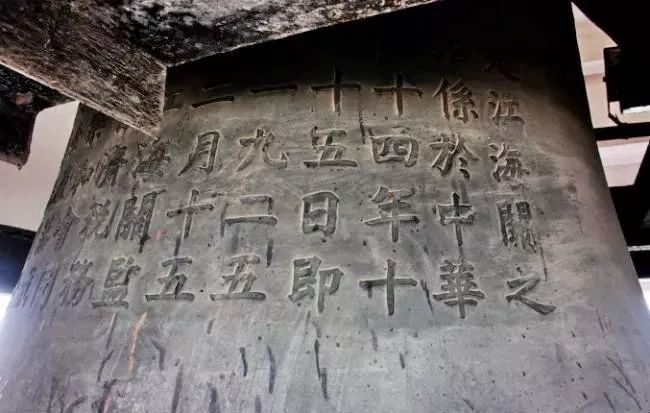 江海關之
係於中華
十四年十
十五日即
一九二五
二月十五
海關監
税務
會同